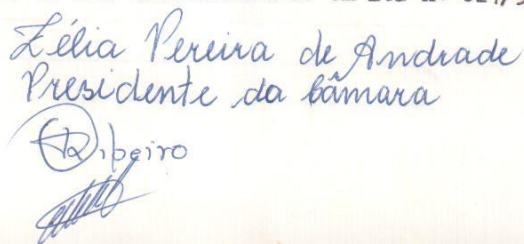 Zélia Pereira de Andrade
Presidente da Câmara
Ribeiro